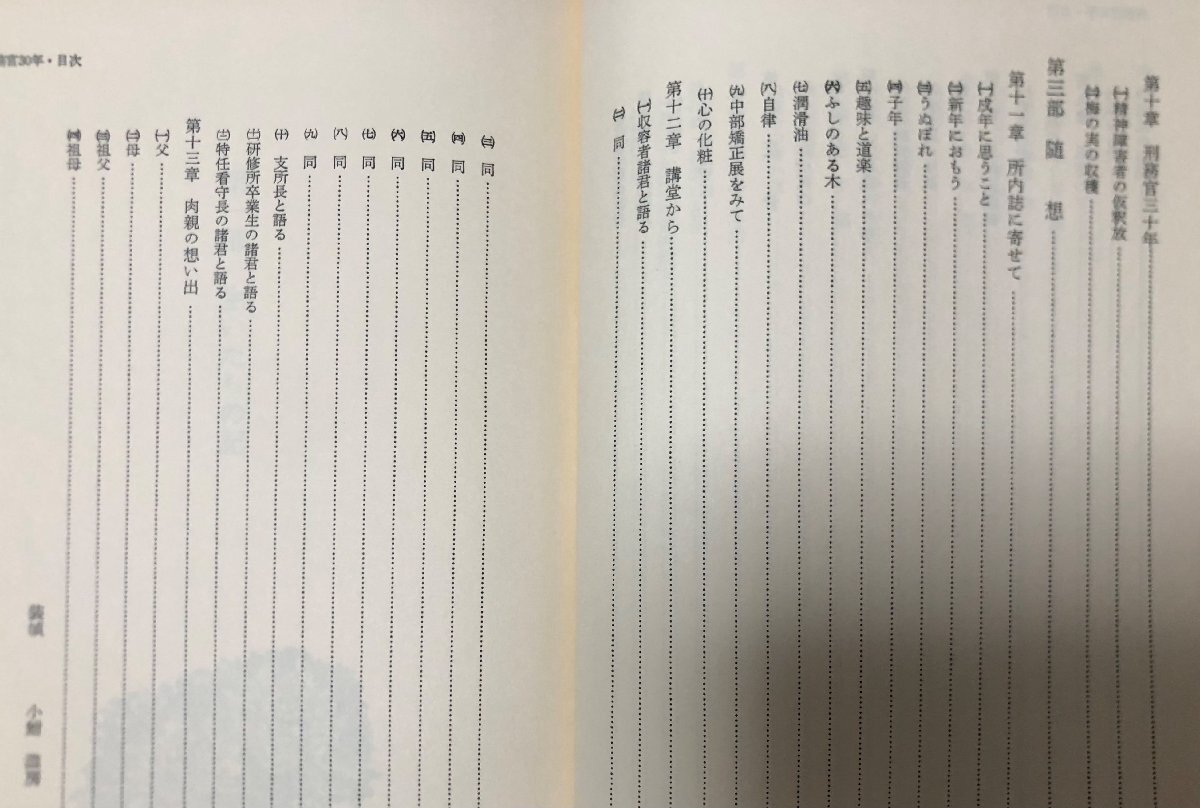 第十章　刑務官三十年
㈠精神障害者の仮釈放
㈡梅の実の収穫
第三部　随　想
第十一章　所内誌に寄せて
㈠戌年に思うこと
㈡新年におもう
㈢うぬぼれ
㈣子年
㈤趣味と道楽
㈥ふしのある木
㈦潤滑油
㈧自律
㈨中部矯正展をみて
㈩心の化粧
第十二章　講堂から
㈠収容者諸君と語る
㈡　同
㈢　同
㈣　同
㈤　同
㈥　同
㈦　同
㈧　同
㈨　同
㈩　支所長と語る
(十一)研修所卒業生の諸君と語る
(十二)特任看守長の諸君と語る
第十三章　肉親の想い出
㈠父
㈡母
㈢祖父
㈣祖母
装幀　小
官30年・目次